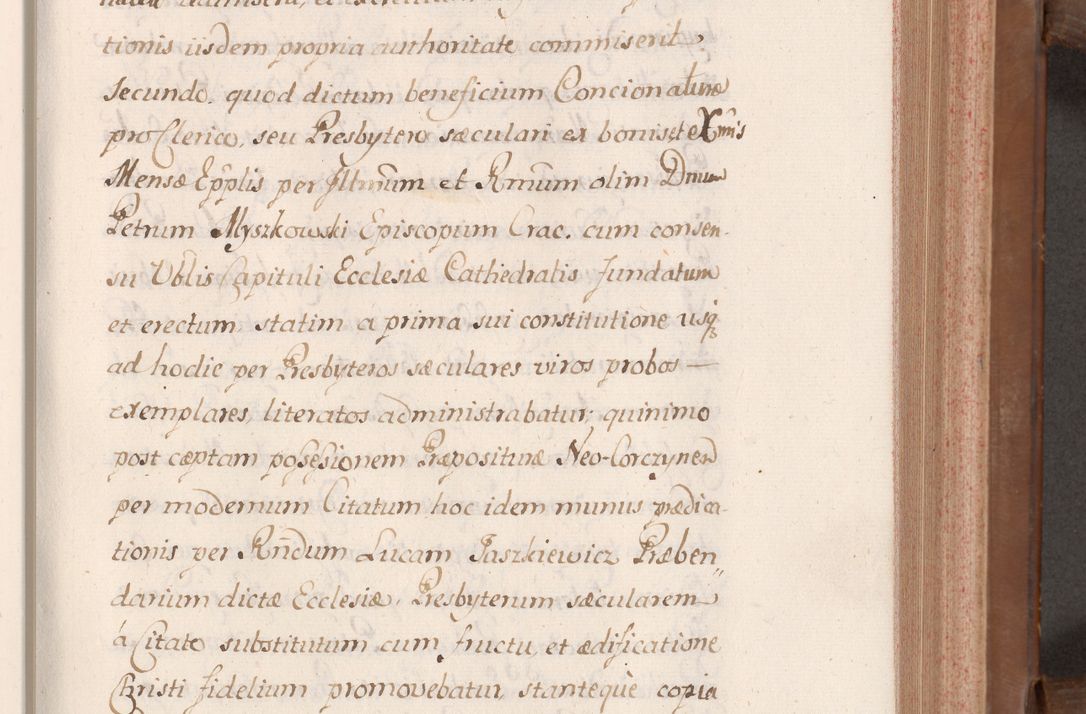 tionis iisdem propria authoritate commiserit,
Secundo. quod dictum beneficium Concionaturæ
pro Clerico, seu Presbytero sæculari ex bonis, et Xmis
Mensæ Epplis per Illmum et Rmum olim Dnum
Petrum Myszkowski Episcopum Crac. cum consen-
su Vblis Capituli Ecclesiæ Cathedralis fundatum
et erectum, statim a prima sui constitutione usq
ad hodie per Presbyteros sæculares viros probos —
exemplares, literatos administrabatur; quinimo
post cæptam possessionem Præposituræ Neo-Corczynen
per modernum Citatum, hoc idem munus prædica-
tionis per Rndum Lucam Jaszkiewicz Præben„
darium dictæ Ecclesiæ, Presbyterum sæcularem
á Citato substitutum cum fructu, et ædificatione
Christi fidelium promovebatur, stanteque copia